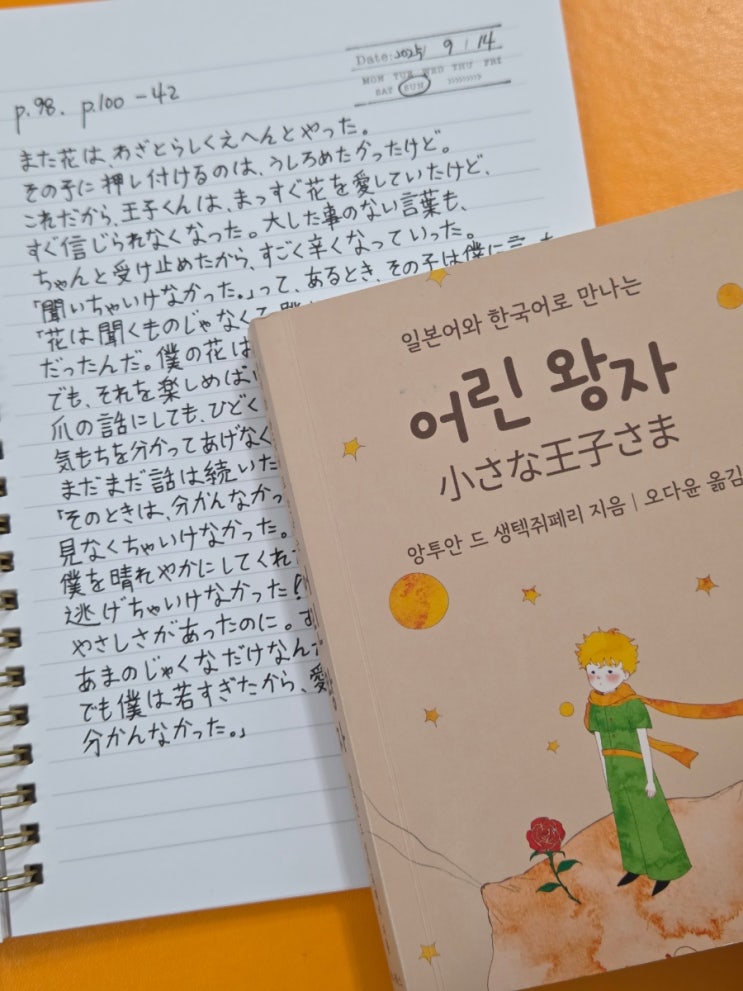 Date: 2025/ 9 / 14
MON TUE WED THU FRI
SAT SUN
p.98. p.100 - 42
また花は、わざとらしくえへんとやった。
その子に押し付けるのは、うしろめたかったけど。
これだから、王子くんは、まっすぐ花を愛していたけど、
すぐ信じられなくなった。大した事のない言葉も、
ちゃんと受け止めたから、すごく辛くなっていった。
「聞いちゃいけなかった。」って、あるとき、その子は僕に言った
「花は聞くものじゃなくて
だったんだ。僕の花は
でも、それを楽しめばい
爪の話にしても、ひどく
気もちを分かってあげなく
まだまだ話は続いた
「そのときは、分かんなかっ
見なくちゃいけなかった。
僕を晴れやかにしてくれ
逃げちゃいけなかった!
やさしさがあったのに。
あまのじゃくなだけなん
でも僕は若すぎたから、愛
分かんなかった。」
일본어와 한국어로 만나는
어린 왕자
小さな王子さま
앙투안 드 생텍쥐페리 지음 | 오다윤 옮김